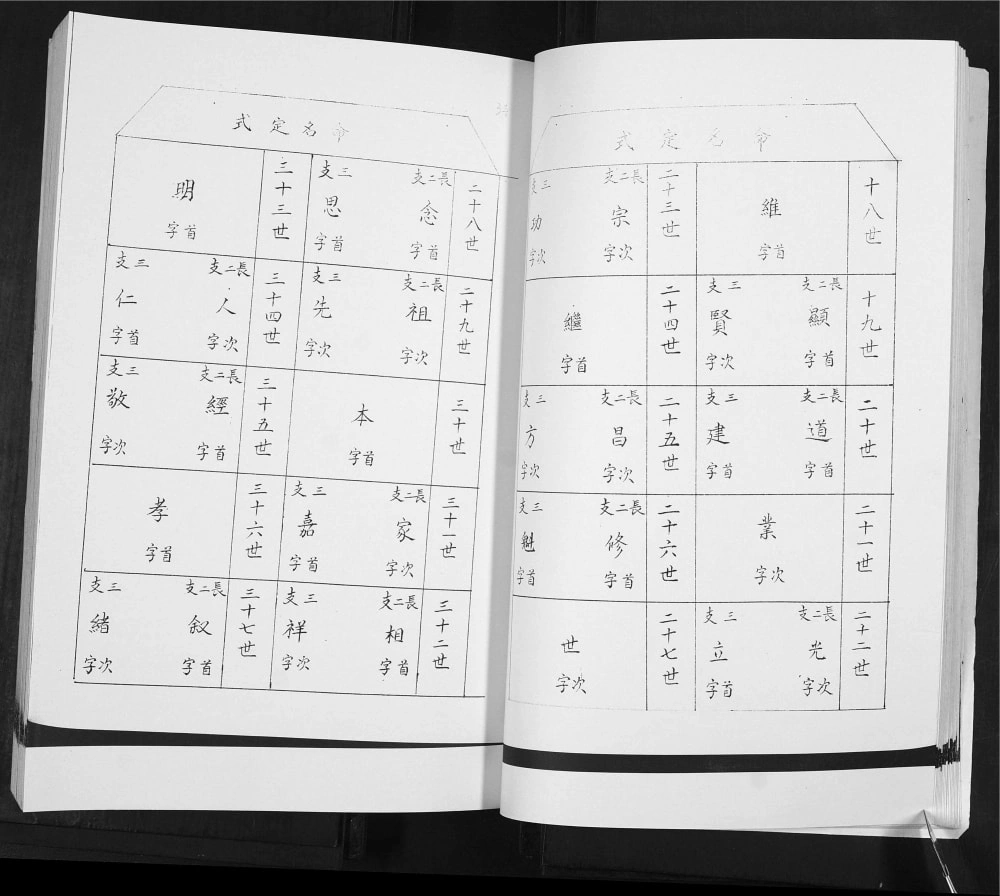 命名定式
十八世
維
首字
十九世
長二支
顯
首字
三支
賢
次字
二十世
長二支
道
首字
三支
建
首字
二十一世
業
次字
二十二世
長二支
光
次字
三支
立
首字
二十三世
長二支
宗
次字
三支
功
次字
二十四世
繼
首字
二十五世
長二支
昌
次字
三支
方
次字
二十六世
長二支
修
首字
三支
首字
二十七世
世
次字
命名定式
二十八世
長二支
念
首字
三支
思
首字
二十九世
長二支
祖
次字
三支
先
次字
三十世
本
首字
三十一世
長二支
家
次字
三支
嘉
首字
三十二世
長二支
相
首字
三支
祥
次字
三十三世
明
首字
三十四世
長二支
人
次字
三支
仁
首字
三十五世
長二支
經
首字
三支
敬
次字
三十六世
孝
首字
三十七世
長二支
叙
首字
三支
緒
次字